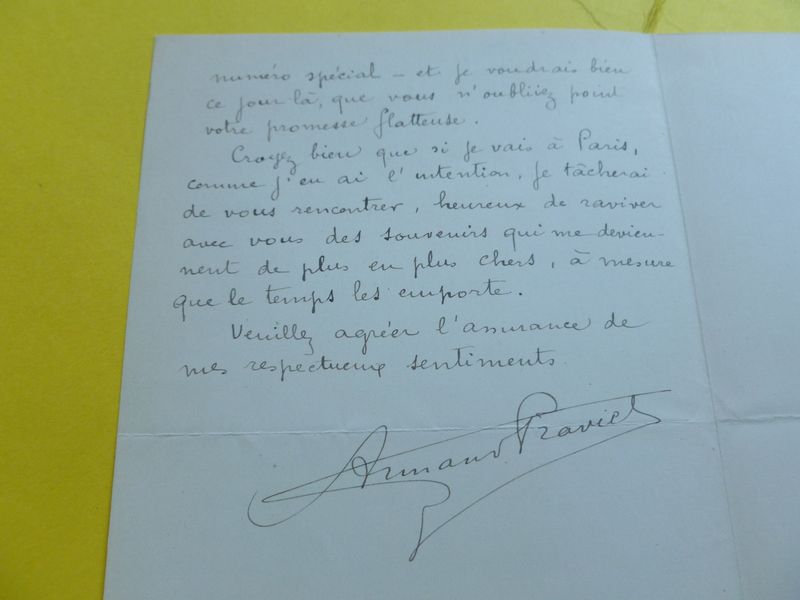 numéro spécial — et je voudrais bien
ce jour là, que vous n'oubliiez point
votre promesse flatteuse.
Croyez bien que si je vais à Paris,
comme j'en ai l'intention, je tâcherai
de vous rencontrer, heureux de raviver
avec vous des souvenirs qui me devien-
nent de plus en plus chers, à mesure
que le temps les emporte.
Veuillez agréer l'assurance de
mes respectueux sentiments.
Armand Praviel